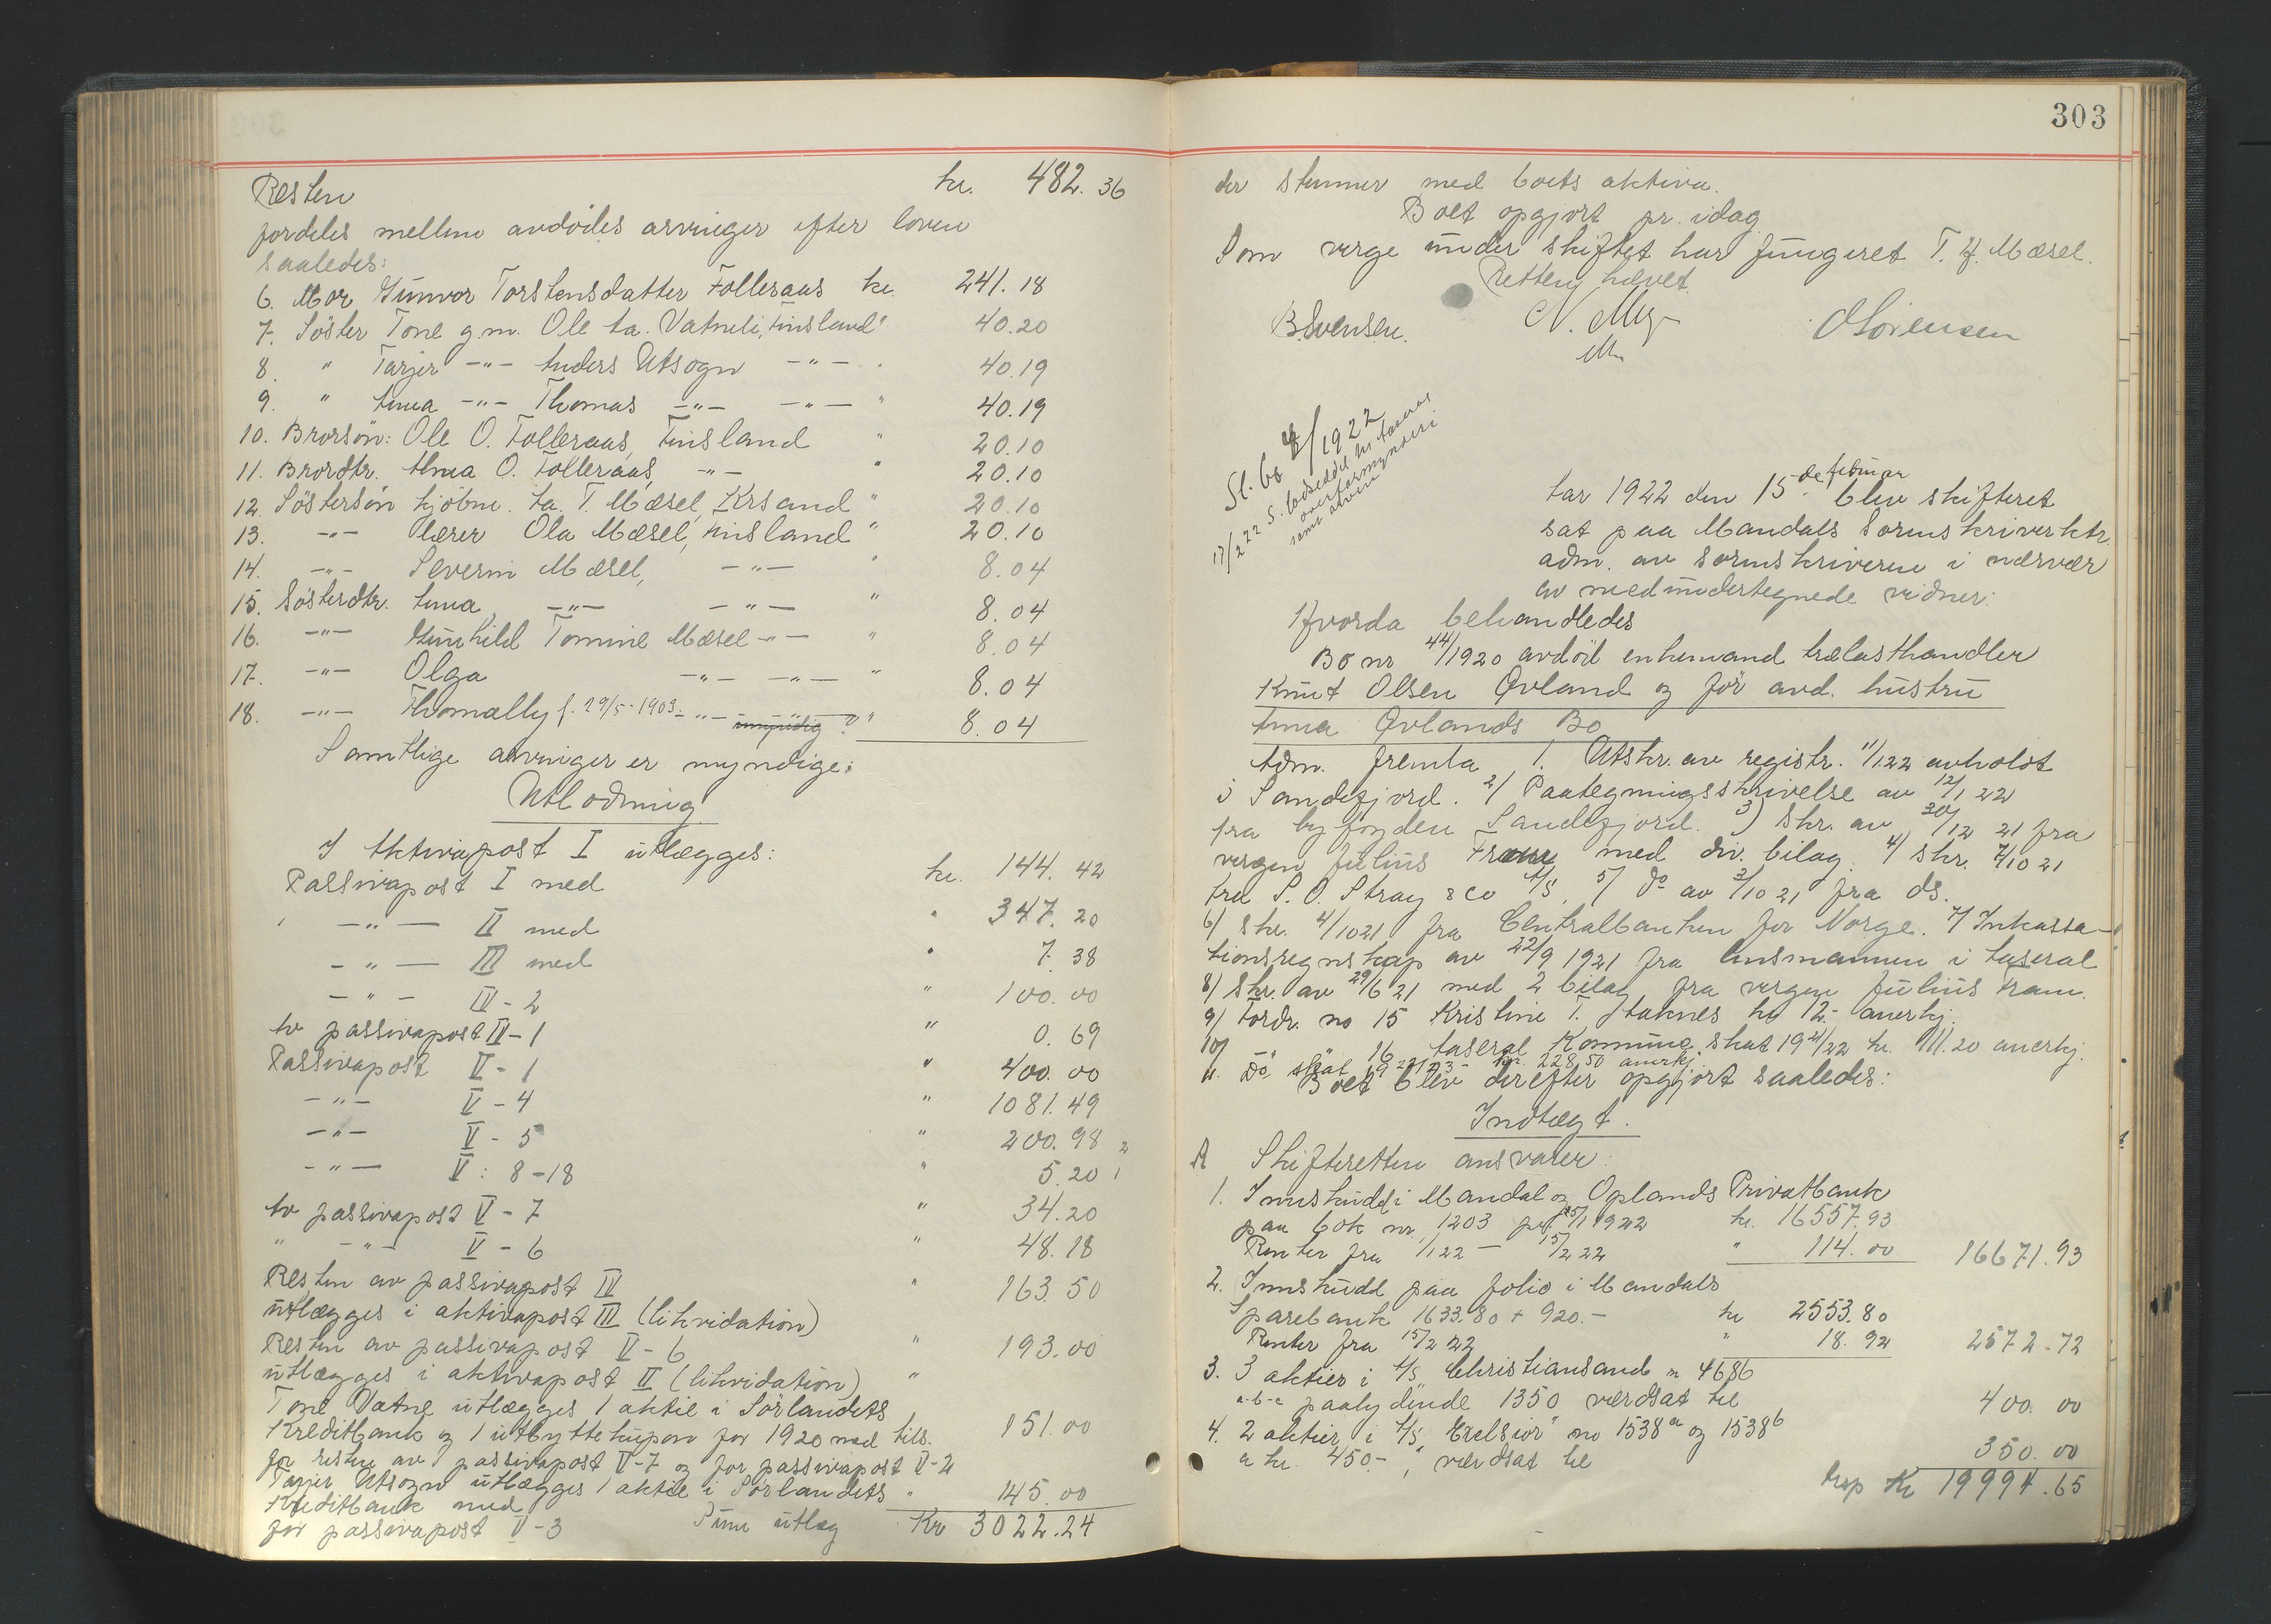 Resten kr. 482.36
fordeles mellem avdödes arvinger efter loven
saaledes:
6. Mor Gunvor Torstensdatter Folleraas kr. 241.18
7. Söster Tone g.m. Ole Aa. Vatneli, Finsland " 40.20
8. " Tarjer -"- Anders Utsogn -"- " 40.19
9. " Anna -"- Thomas -"- -"- " 40.19
10. Brorsön: Ole O. Folleraas, Finsland " 20.10
11. Brordtr. Anna O. Folleraas, -"- " 20.10
12. Söstersön kjöbm. Aa. T. Mæsel, Krsand " 20.10
13. -"- lærer Ola Mæsel, Finsland " 20.10
14. -"- Severin Mæsel, -"- " 8.04
15. Sösterdtr. Anna -"- -"- " 8.04
16. -"- Gunhild Tomine Mæsel -"- " 8.04
17. -"- Olga -"- -"- " 8.04
18. -"- Thomally f. 29/5-1903 -"- -"- umyndig? " 8.04
Samtlige arvinger er myndige.
Utlodning
I Aktivapost I utlægges:
Passivapost I med kr. 144.42
-"- II med " 347.20
-"- III med " 7.38
-"- IV - 2 " 100.00
Av passivapost IV - 1 " 0.69
Passivapost V - 1 " 400.00
-"- V - 4 " 1081.49
-"- V - 5 " 200.98
-"- V: 8-18 " 5.20
Av passivapost V - 7 " 34.20
" -"- V - 6 " 48.18
Resten av passivapost IV " 163.50
utlægges i aktivapost III (likvidation)
Resten av passivapost V - 6 " 193.00
utlægges i aktivapost II (likvidation) "
Tone Vatne utlægges 1 aktie i Sörlandets
Kreditbank og 1 utbyttekupon for 1920 med tils. 151.00
for resten av passivapost V-7 og for passivapost V-2
Tarjer Utsogn utlægges 1 aktie i Sörlandets " 145.00
Kreditbank med
for passivapost V-3 Sum utlæg Kr 3022.24
303
der stemmer med boets aktiva.
Boet opgjort pr. idag
Som verge under skiftet har fungeret T. G. Mæsel.
Retten hævet.
B. Svensen. O Sörensen
1922
Aar 1922 den 15-de februar blev skifteret
sat paa Mandals Sorenskriverktr.
adm. av sorenskriveren i nærvær
av medundertegnede vidner:
Hvorda behandledes
Bo nr 44/1920 avdöd enkemand trælasthandler
Knut Olsen Övland og för avd. hustru
Anna Övlands Bo
Adm. fremla 1. Utskr. av registr. 11/1 22 avholdt
i Sandefjord. 2/ Paategningsskrivelse av 12/1 22
fra byfogden Sandefjord. 3) skr. av 30/12 21 fra
vergen Julius Fram med div. bilag. 4/ skr. 7/10 21
fra S. O. Stray & Co A/S, 5/ do av 3/10 21 fra ds.
6/ skr. 4/10 21 fra Centralbanken for Norge. 7/ Inkassa-
tionsregnskap av 22/9 1921 fra lensmannen i Aaseral
8/ Skr. av 29/6 21 med 2 bilag fra vergen Julius Fram.
9/ Fordr. no 15 Kristine T. Haknes kr 12.- anerkj.
10/ -"- " 16 Aaseral Kommune skat 1921/22 kr. 111.20 anerkj.
11. Do, skat kr. 228.50 anerkj.
Boet blev derefter opgjort saaledes:
Indtægt.
A Skifteretten ansvarer:
1. Innskudd i Mandal og Oplands Privatbank
paa bok nr 1203 1922 kr. 16557.93
Renter fra 1/1 22 - 15/2 22 " 114.00 16671.93
2. Innskudd paa folio i Mandals
Sparebank 1633.80 + 920.- kr 2553.80
Renter fra 15/2 22 " 18.92 2572.72
3. 3 aktier i A/S Christiansand nr 4686
a-b-c paalydende 1350 værdsat til 400.00
4. 2 aktier i A/S "Excelsior" no 1538a og 1538b
a kr. 450.-, værdsat til 350.00
Kr 19994.65